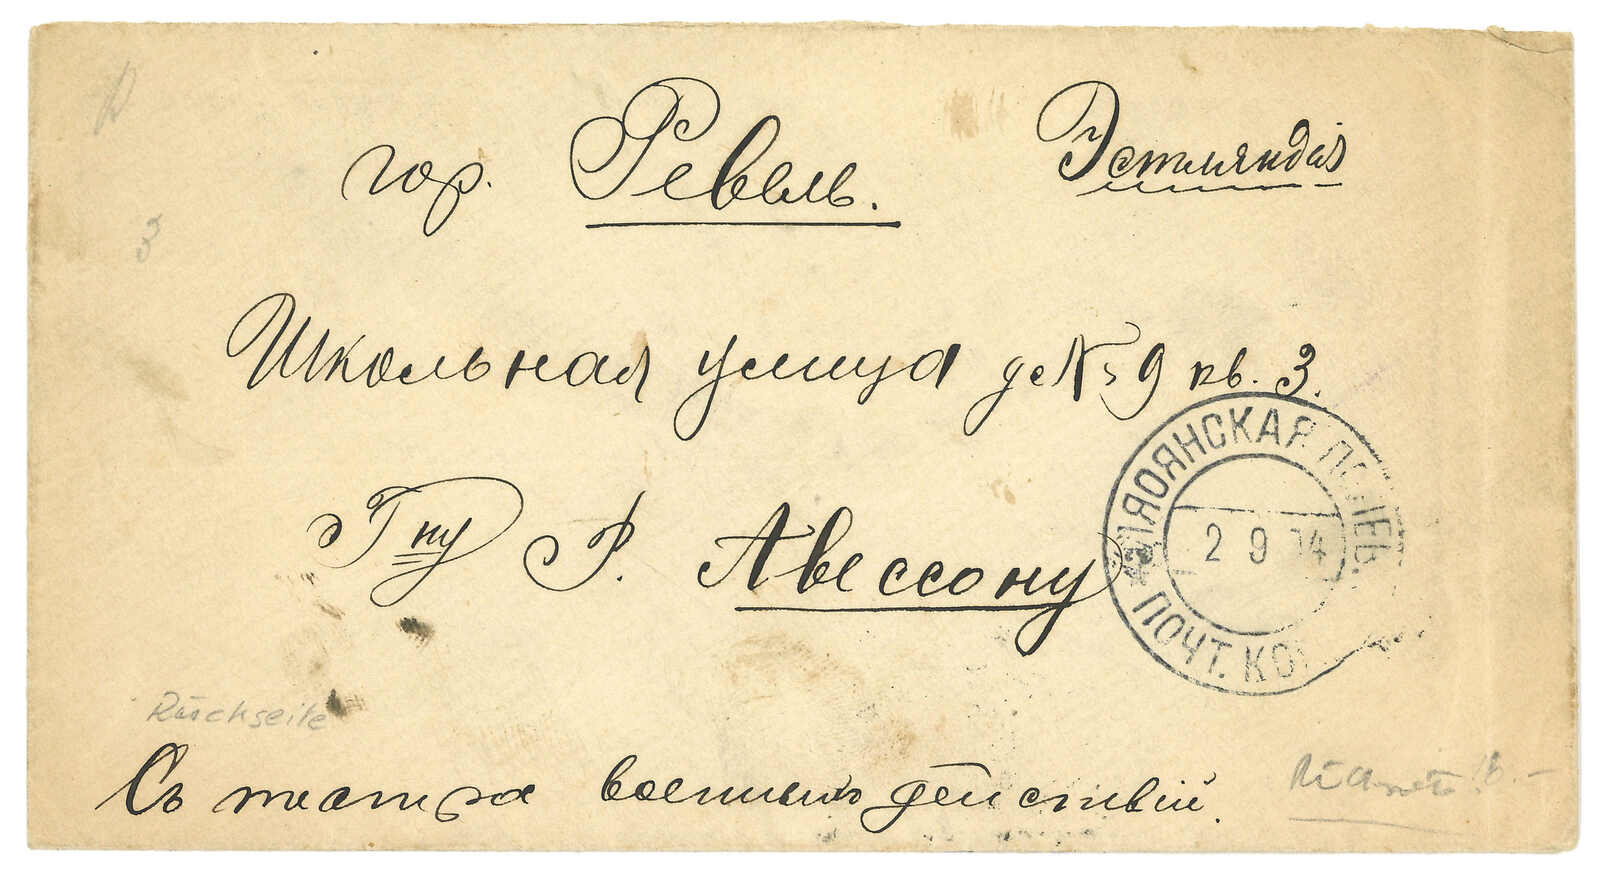 гор. Ревель. Эстляндія
3
Школьная улица д № 9 кв. 3.
Гну Р. Авессону
ЛЯОЯНСКАЯ ПОЛЕВ.
2 9 04
ПОЧТ. КОН
Rückseite
Съ театра военныхъ действій.